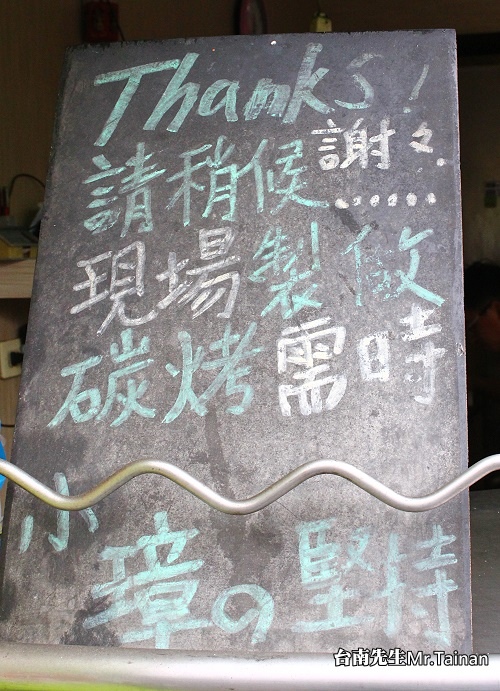 Thanks!
謝々
請稍候......
現場製做
碳烤需時
小璋の堅持
台南先生Mr.Tainan